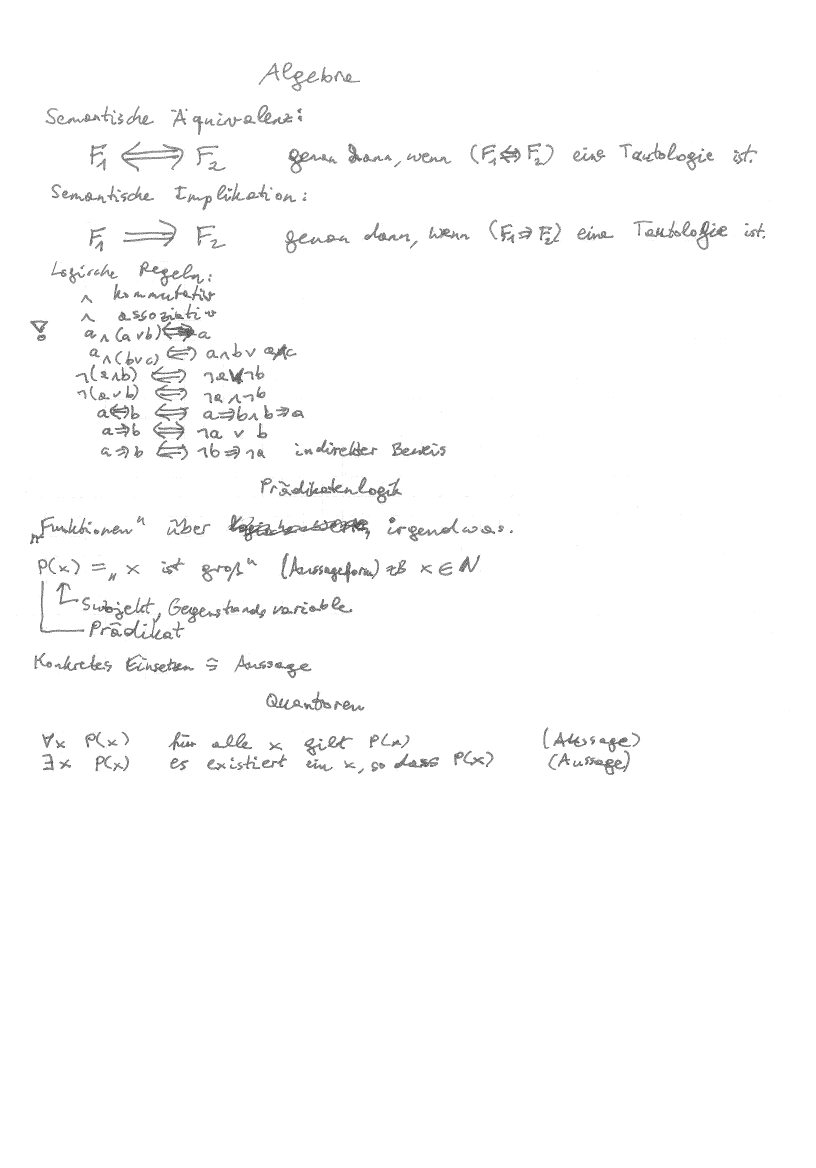 Algebra
Semantische Äquivalenz:
F₁ ⟺ F₂ genau dann, wenn (F₁⇔F₂) eine Tautologie ist.
Semantische Implikation:
F₁ ⟹ F₂ genau dann, wenn (F₁⇒F₂) eine Tautologie ist.
Logische Regeln:
∧ kommutativ
∧ assoziativ
a∧(a∨b) ⟺ a
a∧(b∨c) ⟺ a∧b ∨ a∧c
¬(a∧b) ⟺ ¬a∨¬b
¬(a∨b) ⟺ ¬a∧¬b
a⇔b ⟺ a⇒b∧b⇒a
a⇒b ⟺ ¬a ∨ b
a⇒b ⟺ ¬b⇒¬a indirekter Beweis
Prädikatenlogik
„Funktionen“ über irgendwas.
P(x) = „x ist groß“ (Aussageform) zB x∈ℕ
Subjekt, Gegenstandsvariable
Prädikat
Konkretes Einsetzen ≙ Aussage
Quantoren
∀x P(x) für alle x gilt P(x) (Aussage)
∃x P(x) es existiert ein x, so dass P(x) (Aussage)